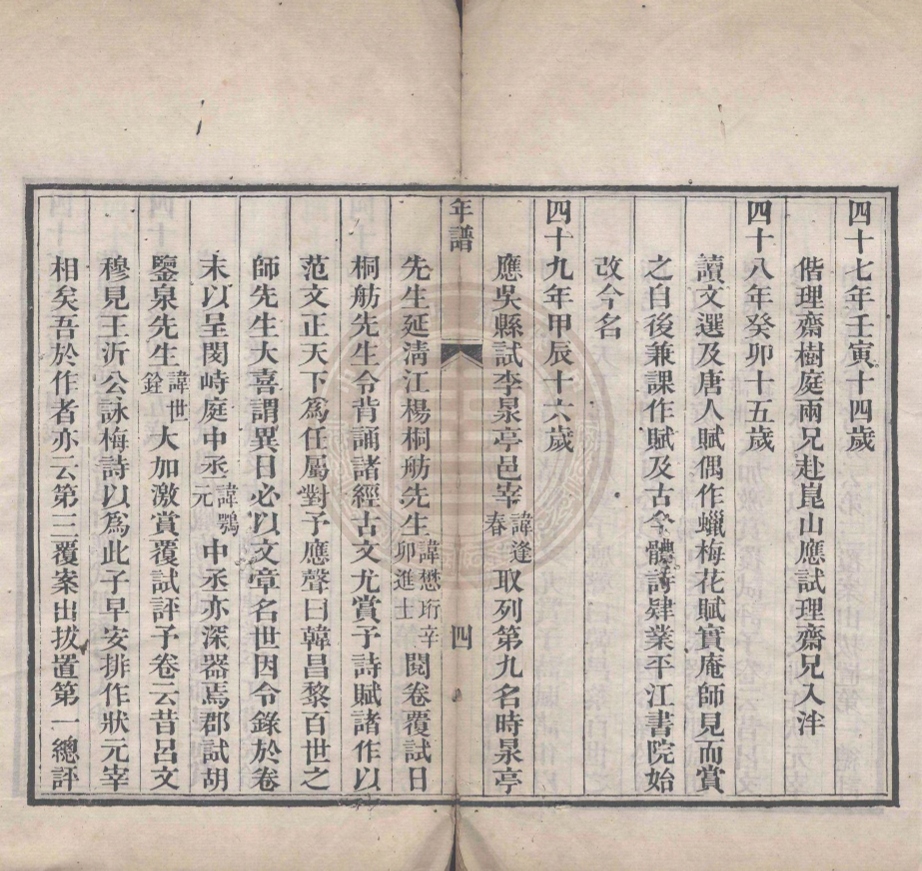 四十七年壬寅十四歲
偕理齋樹庭兩兄赴崑山應試理齋兄入泮
四十八年癸卯十五歲
讀文選及唐人賦偶作蠟梅花賦實庵師見而賞
之自後兼課作賦及古今體詩肄業平江書院始
改今名
四十九年甲辰十六歲
應吳縣試李泉亭邑宰諱逢春取列第九名時泉亭
年譜 四
先生延淸江楊桐舫先生諱懋珩辛卯進士閱卷覆試日
桐舫先生令背誦諸經古文尤賞予詩賦諸作以
范文正天下爲任屬對予應聲曰韓昌黎百世之
師先生大喜謂異日必以文章名世因令錄於卷
末以呈閔峙庭中丞諱鶚元中丞亦深器焉郡試胡
鑒泉先生諱世銓大加激賞覆試評予卷云昔呂文
穆見王沂公詠梅詩以爲此子早安排作狀元宰
相矣吾於作者亦云第三覆案出拔置第一總評